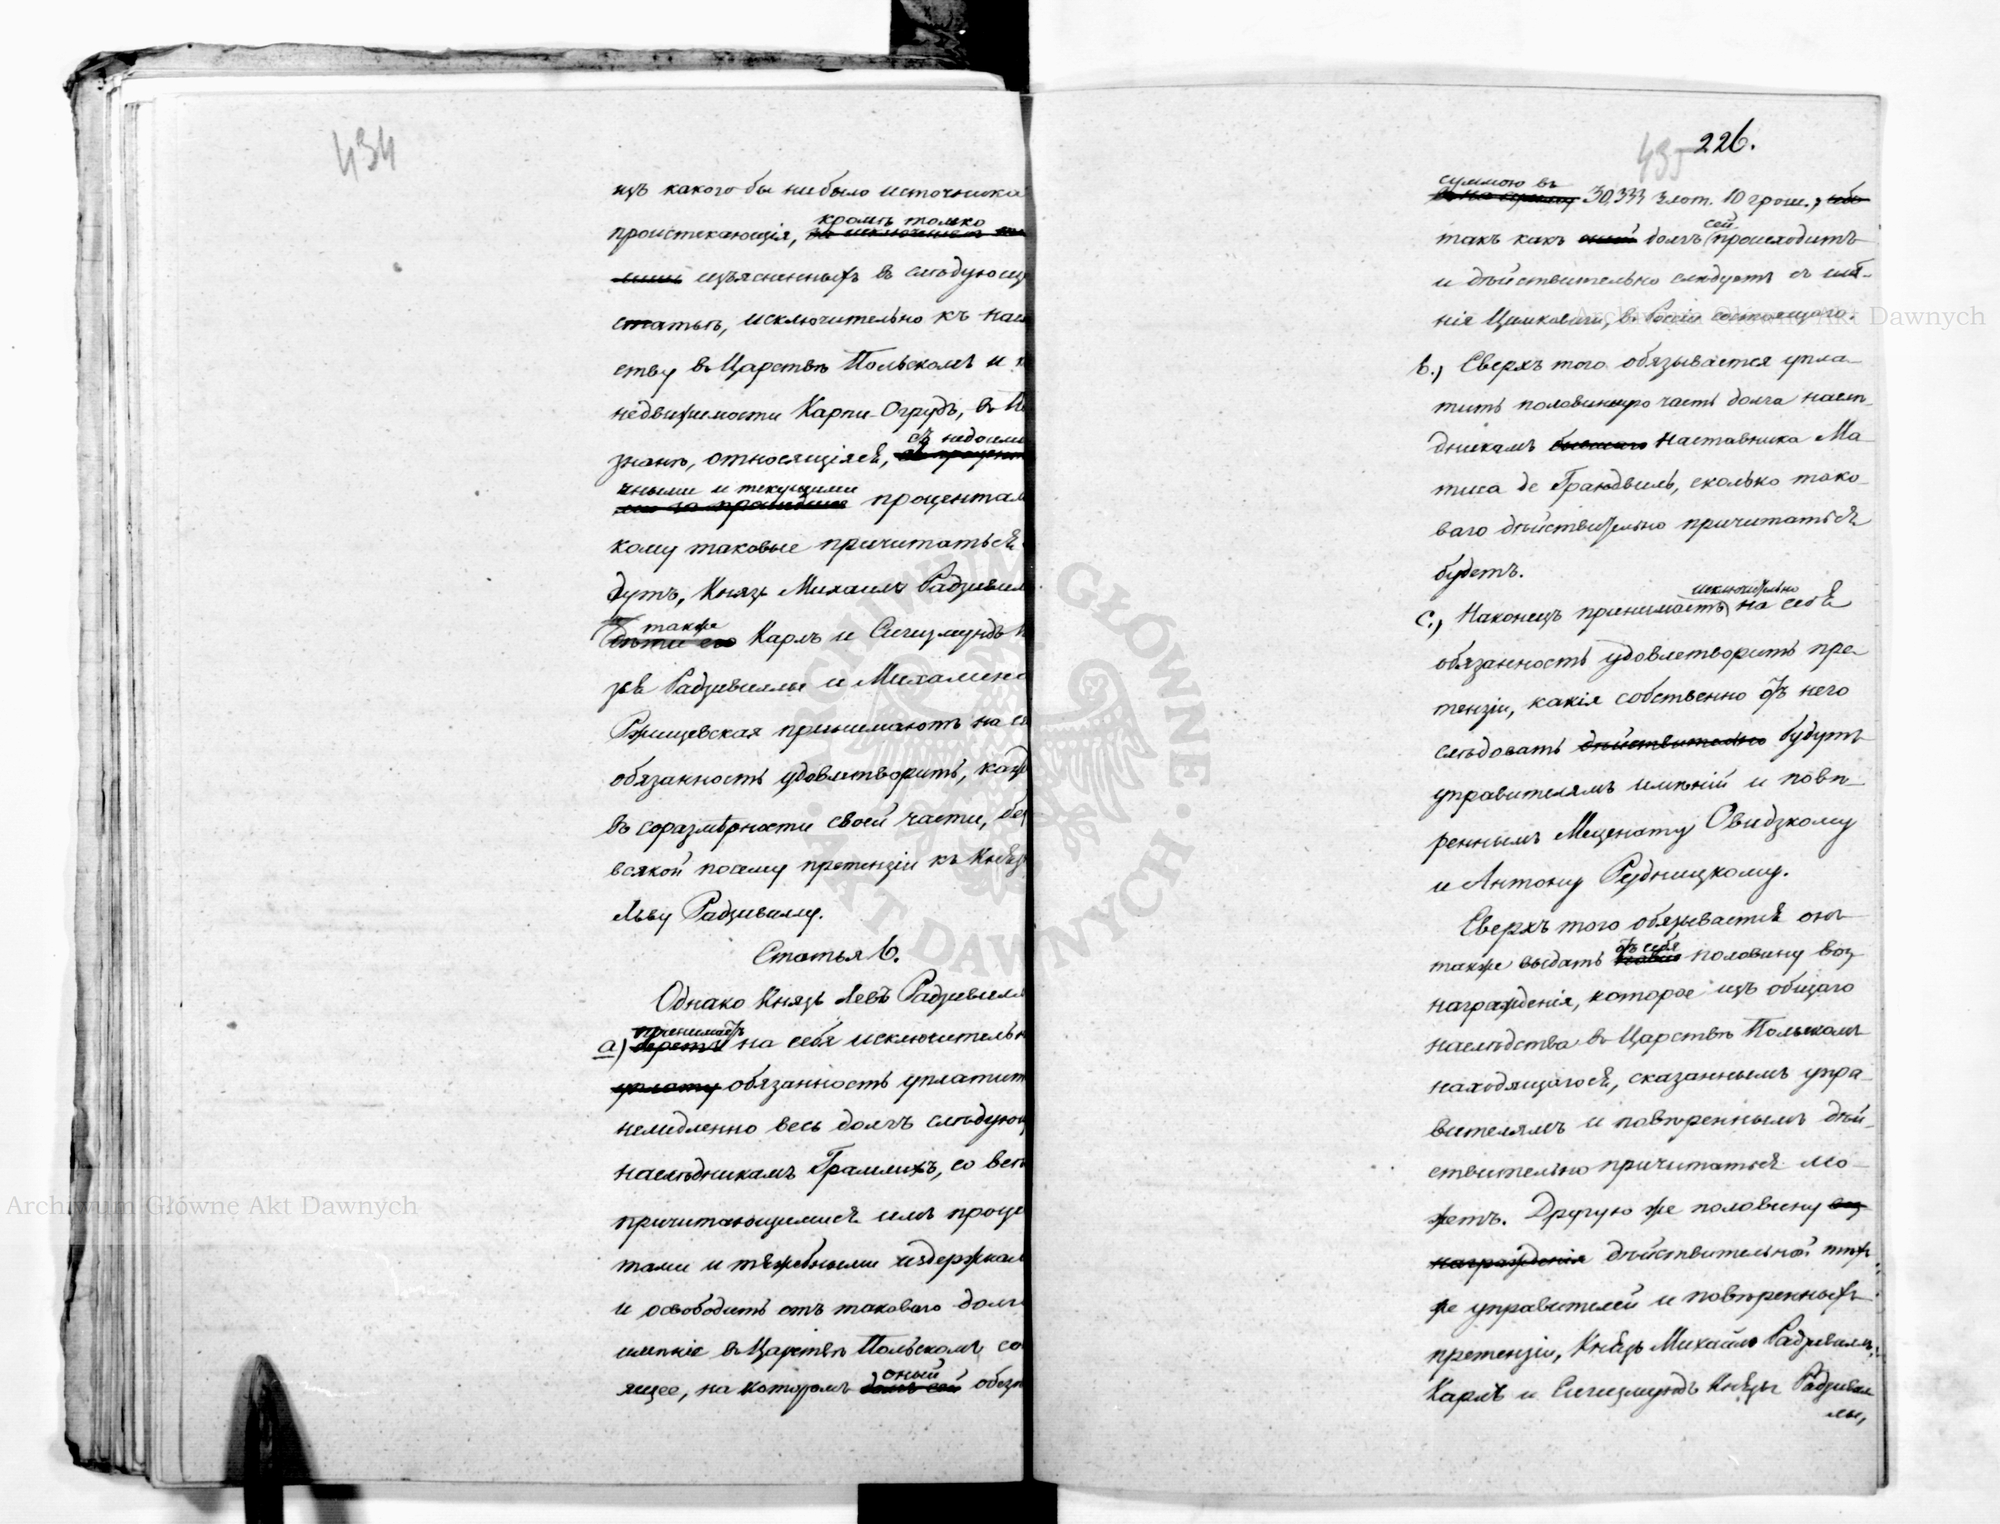 434
изъ какого бы ни было источника
кромѣ только
проистекающія, за исключеніемъ
изъясненныхъ въ слѣдующ
статьѣ, исключительно къ насл
ству въ Царствѣ Польскомъ и к
недвижимости Карпи-Огрудъ, въ По
съ недоим
знанѣ, относящіяся, съ процент
чными и текущими
процентам
кому таковые причитаться
дутъ, Князь Михаилъ Радзивил
также
дѣти его Карлъ и Сигизмундъ К
зья Радзивиллы и Михалина
Ржищевская принимаютъ на се
обязанность удовлетворить, кажд
въ соразмѣрности своей части, без
всякой посему претензіи къ Князю
Льву Радзивиллу.
Статья 6.
Однако Князь Левъ Радзивилл
принимаетъ
а) беретъ на себя исключительн
уплату обязанность уплатит
немедленно весь долгъ слѣдующ
наслѣдникамъ Граллихъ, со всѣ
причитающимися имъ проце
тами и тяжебными издержкам
и освободить отъ таковаго долг
имѣніе въ Царствѣ Польскомъ со
оный
ящее, на которомъ долгъ сей обезп
435 226.
суммою въ
30,333 злот. 10 грош.,
сей
такъ какъ оный долгъ происходитъ
и дѣйствительно слѣдуетъ съ имѣ-
нія Цимковичи, въ Россіи состоящаго.
b.) Сверхъ того обязывается упла-
тить половинную часть долга наслѣ-
дникамъ бывшаго Наставника Ма-
тиса де Грандвиль, сколько тако-
ваго дѣйствительно причитаться
будетъ.
исключительно
с.) Наконецъ принимаетъ на себя
обязанность удовлетворить пре-
тензіи, какія собственно отъ него
слѣдовать дѣйствительно будутъ
управителямъ имѣній и повѣ-
реннымъ Меценату Овидзкому
и Антону Рудницкому.
Сверхъ того обязывается онъ
отъ себя
также выдать половину воз-
награжденія, которое изъ общаго
наслѣдства въ Царствѣ Польскомъ
находящагося, сказаннымъ упра-
вителямъ и повѣреннымъ дѣй-
ствительно причитаться мо-
жетъ. Другую же половину воз-
награжденія дѣйствительной тѣхъ
же управителей и повѣренныхъ
претензіи, Князь Михаилъ Радзивиллъ,
Карлъ и Сигизмундъ Князья Радзивил-
лы,
Archiwum Główne Akt Dawnych
Archiwum Główne Akt Dawnych
ARCHIWUM GŁÓWNE AKT DAWNYCH